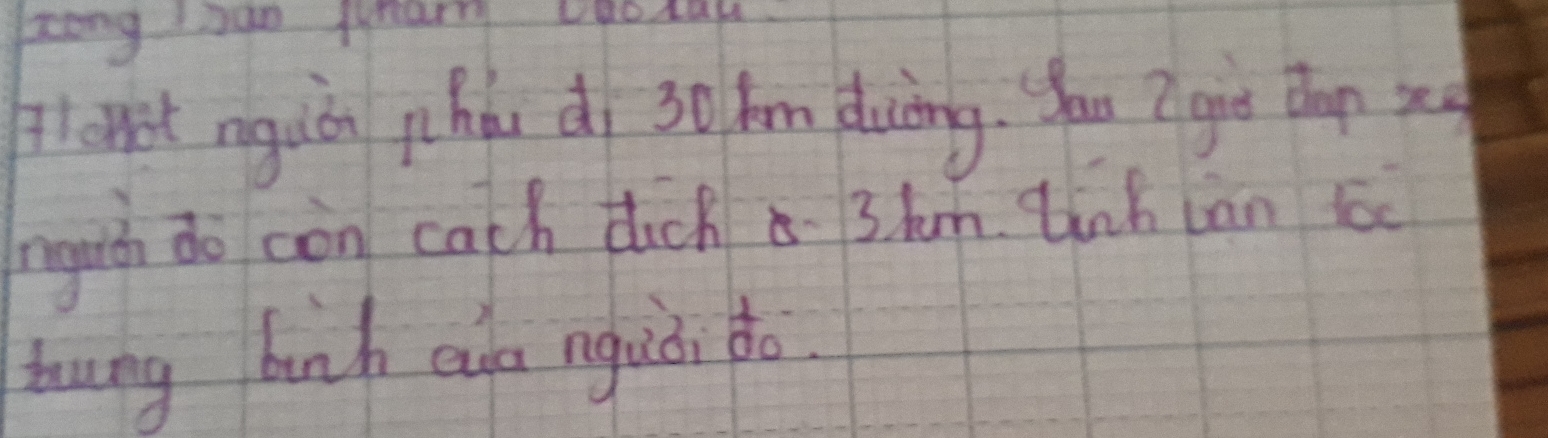 xong sản phẩm
7) Một người phải đi 30 km đường. Sau 2 giờ đạp xe
người đó còn cách đích 3 km. Tính vận tốc
trung bình của người đó.